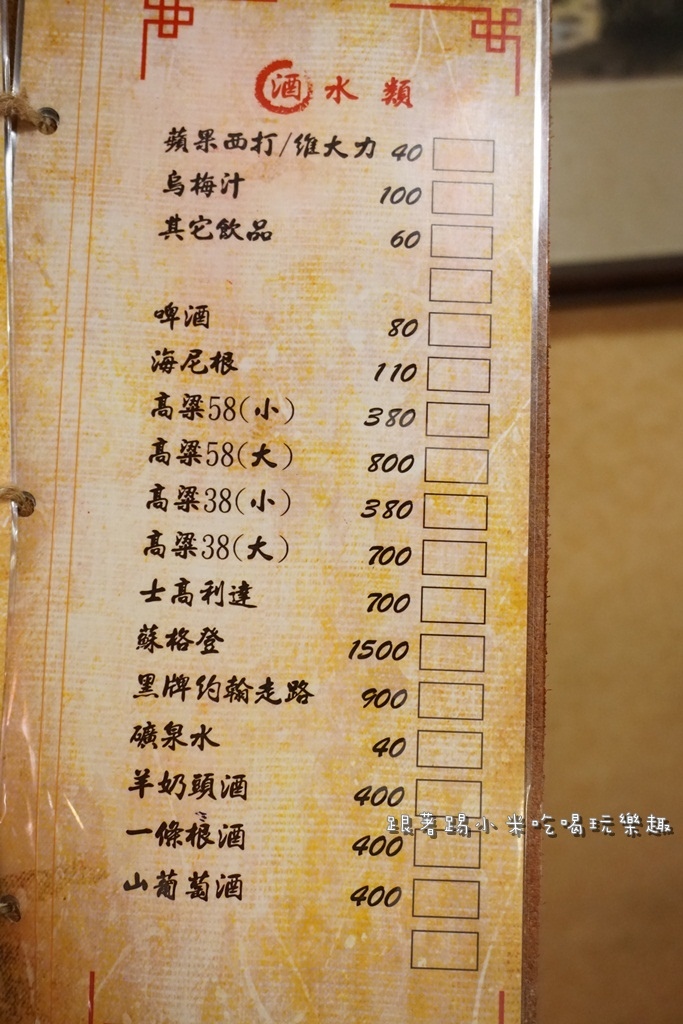 酒水類
蘋果西打/維大力 40
烏梅汁 100
其它飲品 60
啤酒 80
海尼根 110
高粱58(小) 380
高粱58(大) 800
高粱38(小) 380
高粱38(大) 700
士高利達 700
蘇格登 1500
黑牌約翰走路 900
礦泉水 40
羊奶頭酒 400
一條根酒 400
山葡萄酒 400
跟著踢小米吃喝玩樂趣